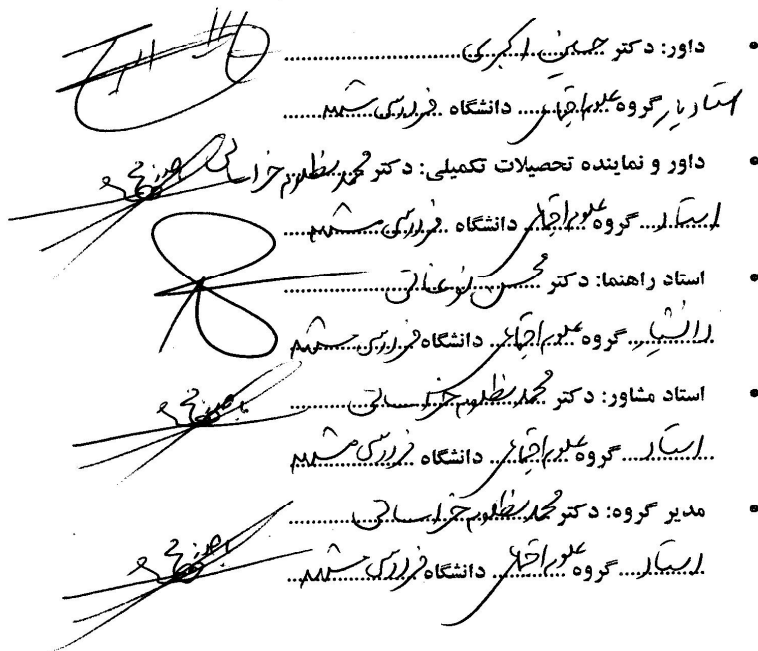 داور: دکتر حسین اکبری
استادیار گروه علوم اجتماعی دانشگاه فردوسی مشهد
داور و نماینده تحصیلات تکمیلی: دکتر محمد مظلوم خراسانی
استاد گروه علوم اجتماعی دانشگاه فردوسی مشهد
استاد راهنما: دکتر محسن نوغانی
دانشیار گروه علوم اجتماعی دانشگاه فردوسی مشهد
استاد مشاور: دکتر محمد مظلوم خراسانی
استاد گروه علوم اجتماعی دانشگاه فردوسی مشهد
مدیر گروه: دکتر محمد مظلوم خراسانی
استاد گروه علوم اجتماعی دانشگاه فردوسی مشهد